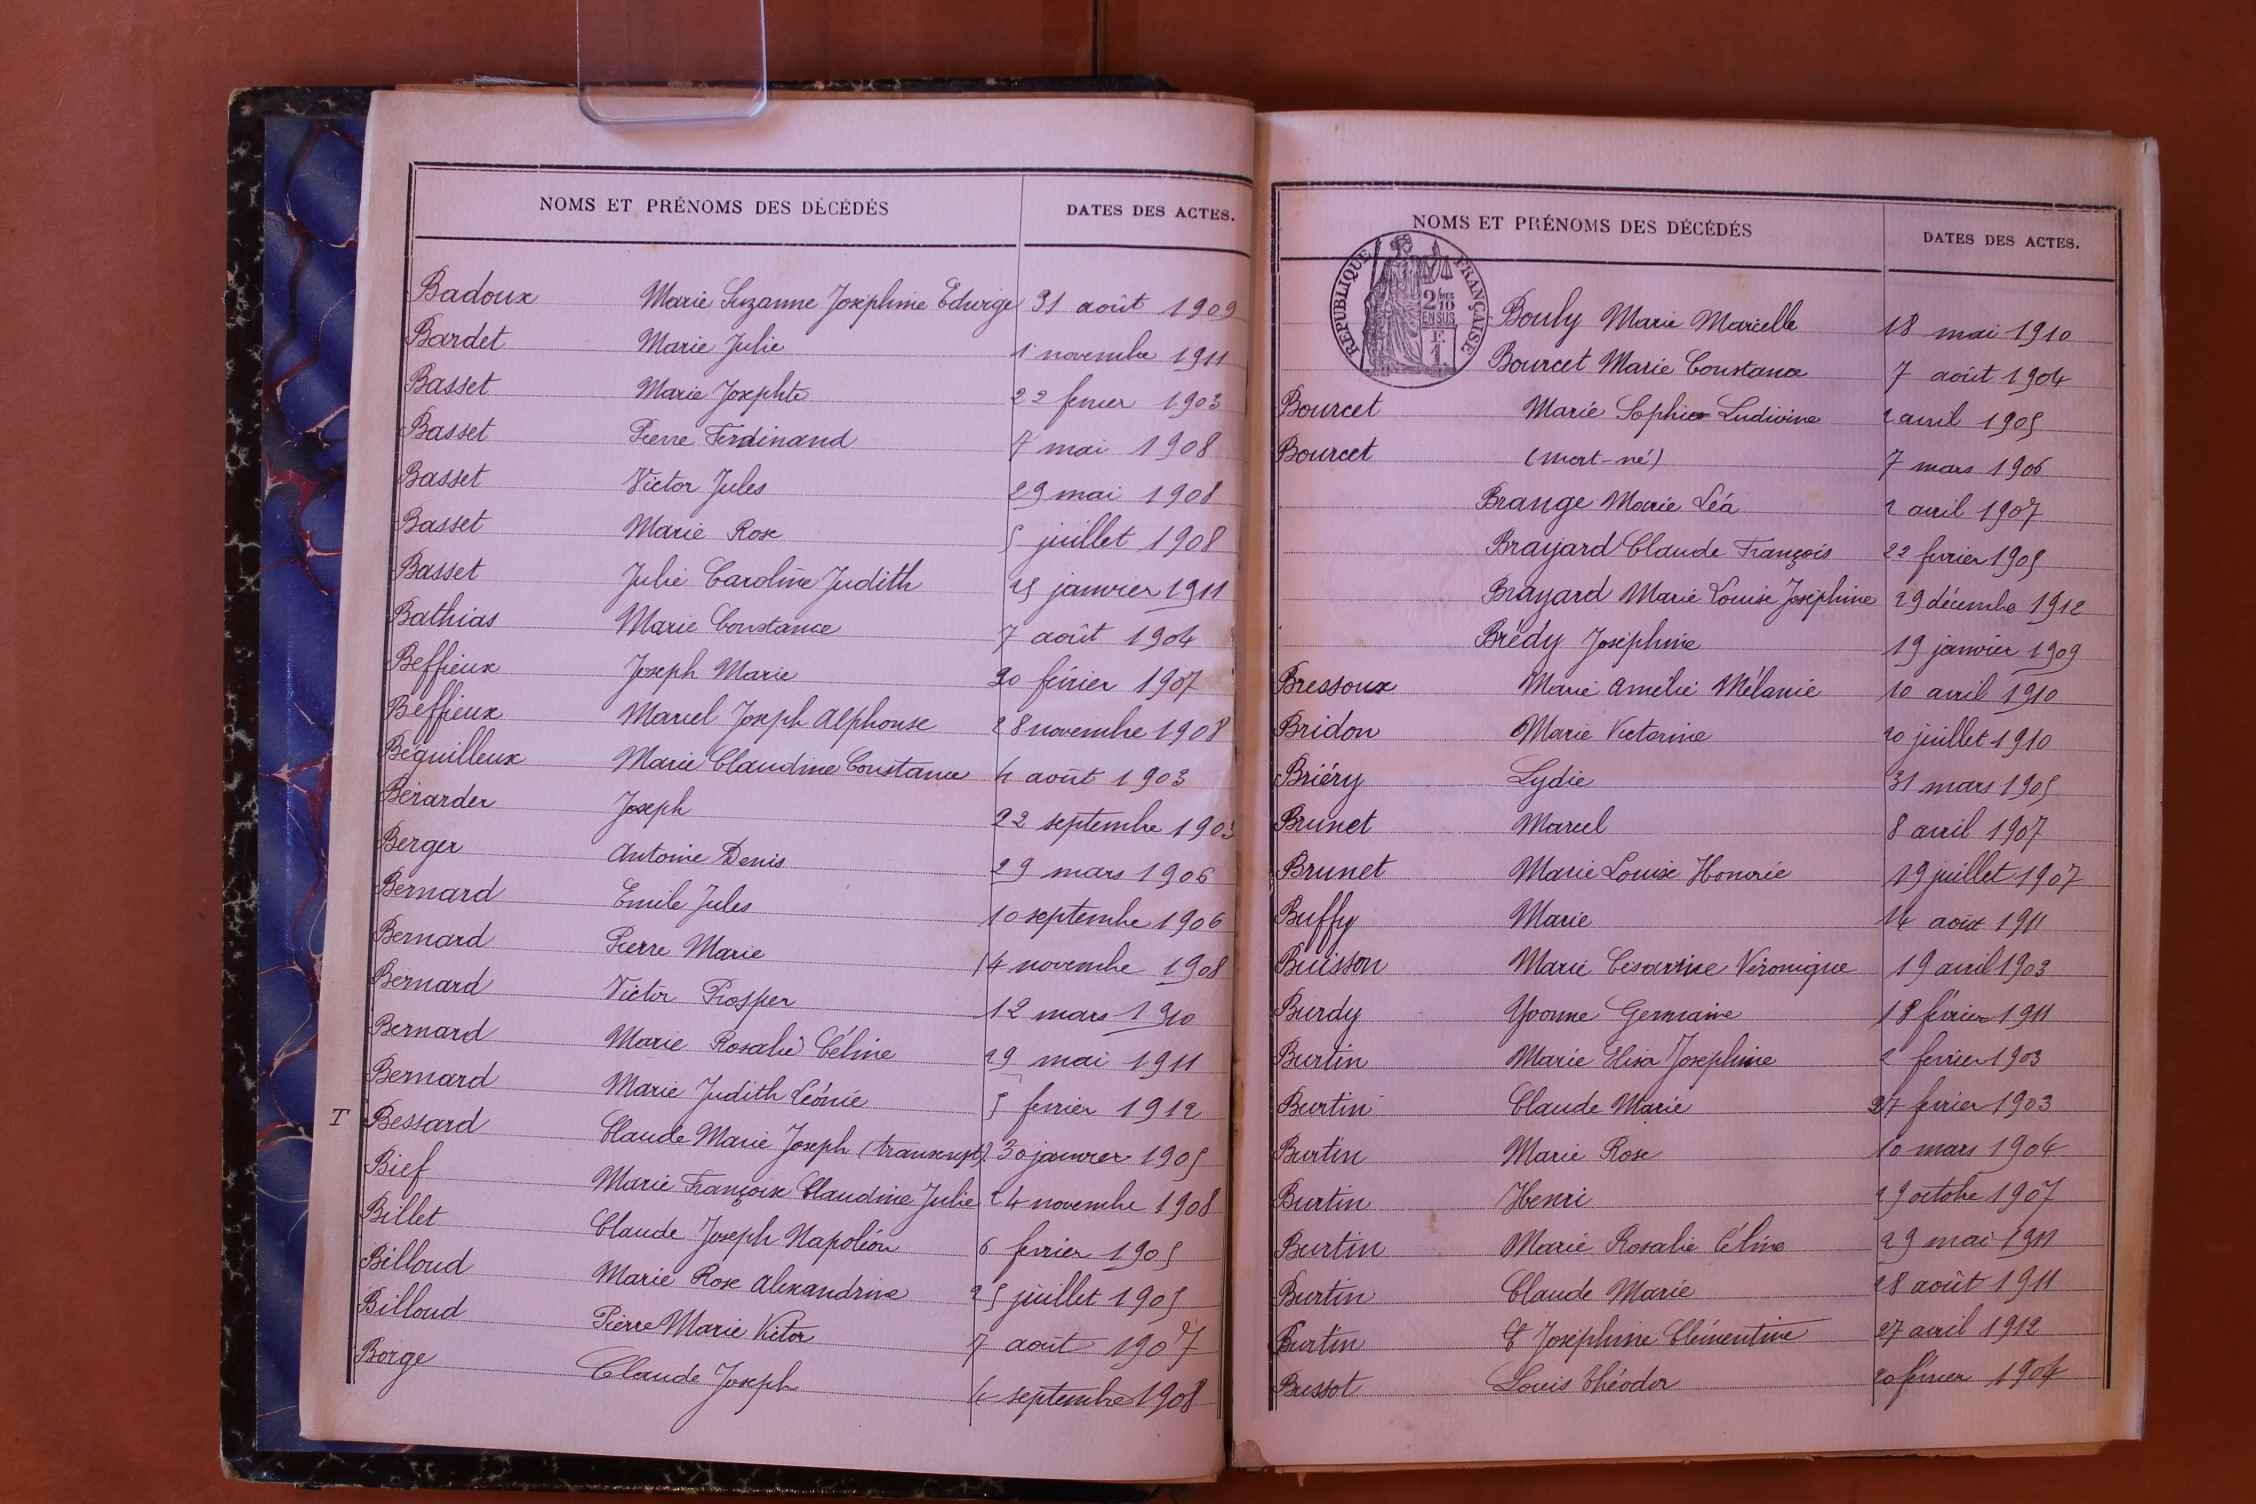 NOMS ET PRÉNOMS DES DÉCÉDÉS DATES DES ACTES.
Badoux Marie Suzanne Joséphine Edwige 31 août 1909
Bardet Marie Julie 1 novembre 1911
Basset Marie Josephte 22 fevrier 1903
Basset Pierre Ferdinand 7 mai 1908
Basset Victor Jules 29 mai 1908
Basset Marie Rose 5 juillet 1908
Basset Julie Caroline Judith 25 janvier 1911
Bathias Marie Constance 7 août 1904
Beffieux Joseph Marie 20 février 1907
Beffieux Marcel Joseph Alphonse 28 novembre 1908
Béguilleux Marie Claudine Constance 4 août 1903
Bérarder Joseph 22 septembre 1903
Berger Antoine Denis 29 mars 1906
Bernard Emile Jules 10 septembre 1906
Bernard Pierre Marie 14 novembre 1908
Bernard Victor Prosper 12 mars 1910
Bernard Marie Rosalie Céline 29 mai 1911
Bernard Marie Judith Léonie 5 fevrier 1912
T Bessard Claude Marie Joseph (transcript) 30 janvier 1905
Bief Marie Françoise Claudine Julie 24 novembre 1908
Billet Claude Joseph Napoléon 6 fevrier 1905
Billoud Marie Rose Alexandrine 25 juillet 1905
Billoud Pierre Marie Victor 7 août 1907
Borge Claude Joseph 4 septembre 1908
NOMS ET PRÉNOMS DES DÉCÉDÉS DATES DES ACTES.
RÉPUBLIQUE FRANÇAISE
2/10 EN SUS
Bouly Marie Marcelle 18 mai 1910
Bourcet Marie Constance 7 août 1904
Bourcet Marie Sophie Ludivine 2 avril 1905
Bourcet (mort-né) 7 mars 1906
Brange Marie Léa 2 avril 1907
Brayard Claude François 22 février 1905
Brayard Marie Louise Joséphine 29 décembre 1912
Brédy Joséphine 19 janvier 1909
Bressoux Marie Amélie Mélanie 10 avril 1910
Bridon Marie Victorine 20 juillet 1910
Briéry Lydie 31 mars 1905
Brunet Marcel 8 avril 1907
Brunet Marie Louise Honorée 19 juillet 1907
Buffy Marie 14 août 1911
Buisson Marie Cesarrine Véronique 19 avril 1903
Burdy Yvonne Germaine 18 février 1911
Burtin Marie Elisa Josephine 2 fevrier 1903
Burtin Claude Marie 27 fevrier 1903
Burtin Marie Rose 10 mars 1904
Burtin Henri 29 octobre 1907
Burtin Marie Rosalie Céline 29 mai 1911
Burtin Claude Marie 28 août 1911
Burtin Joséphine Clémentine 27 avril 1912
Bussot Louis Théodor 20 février 1904